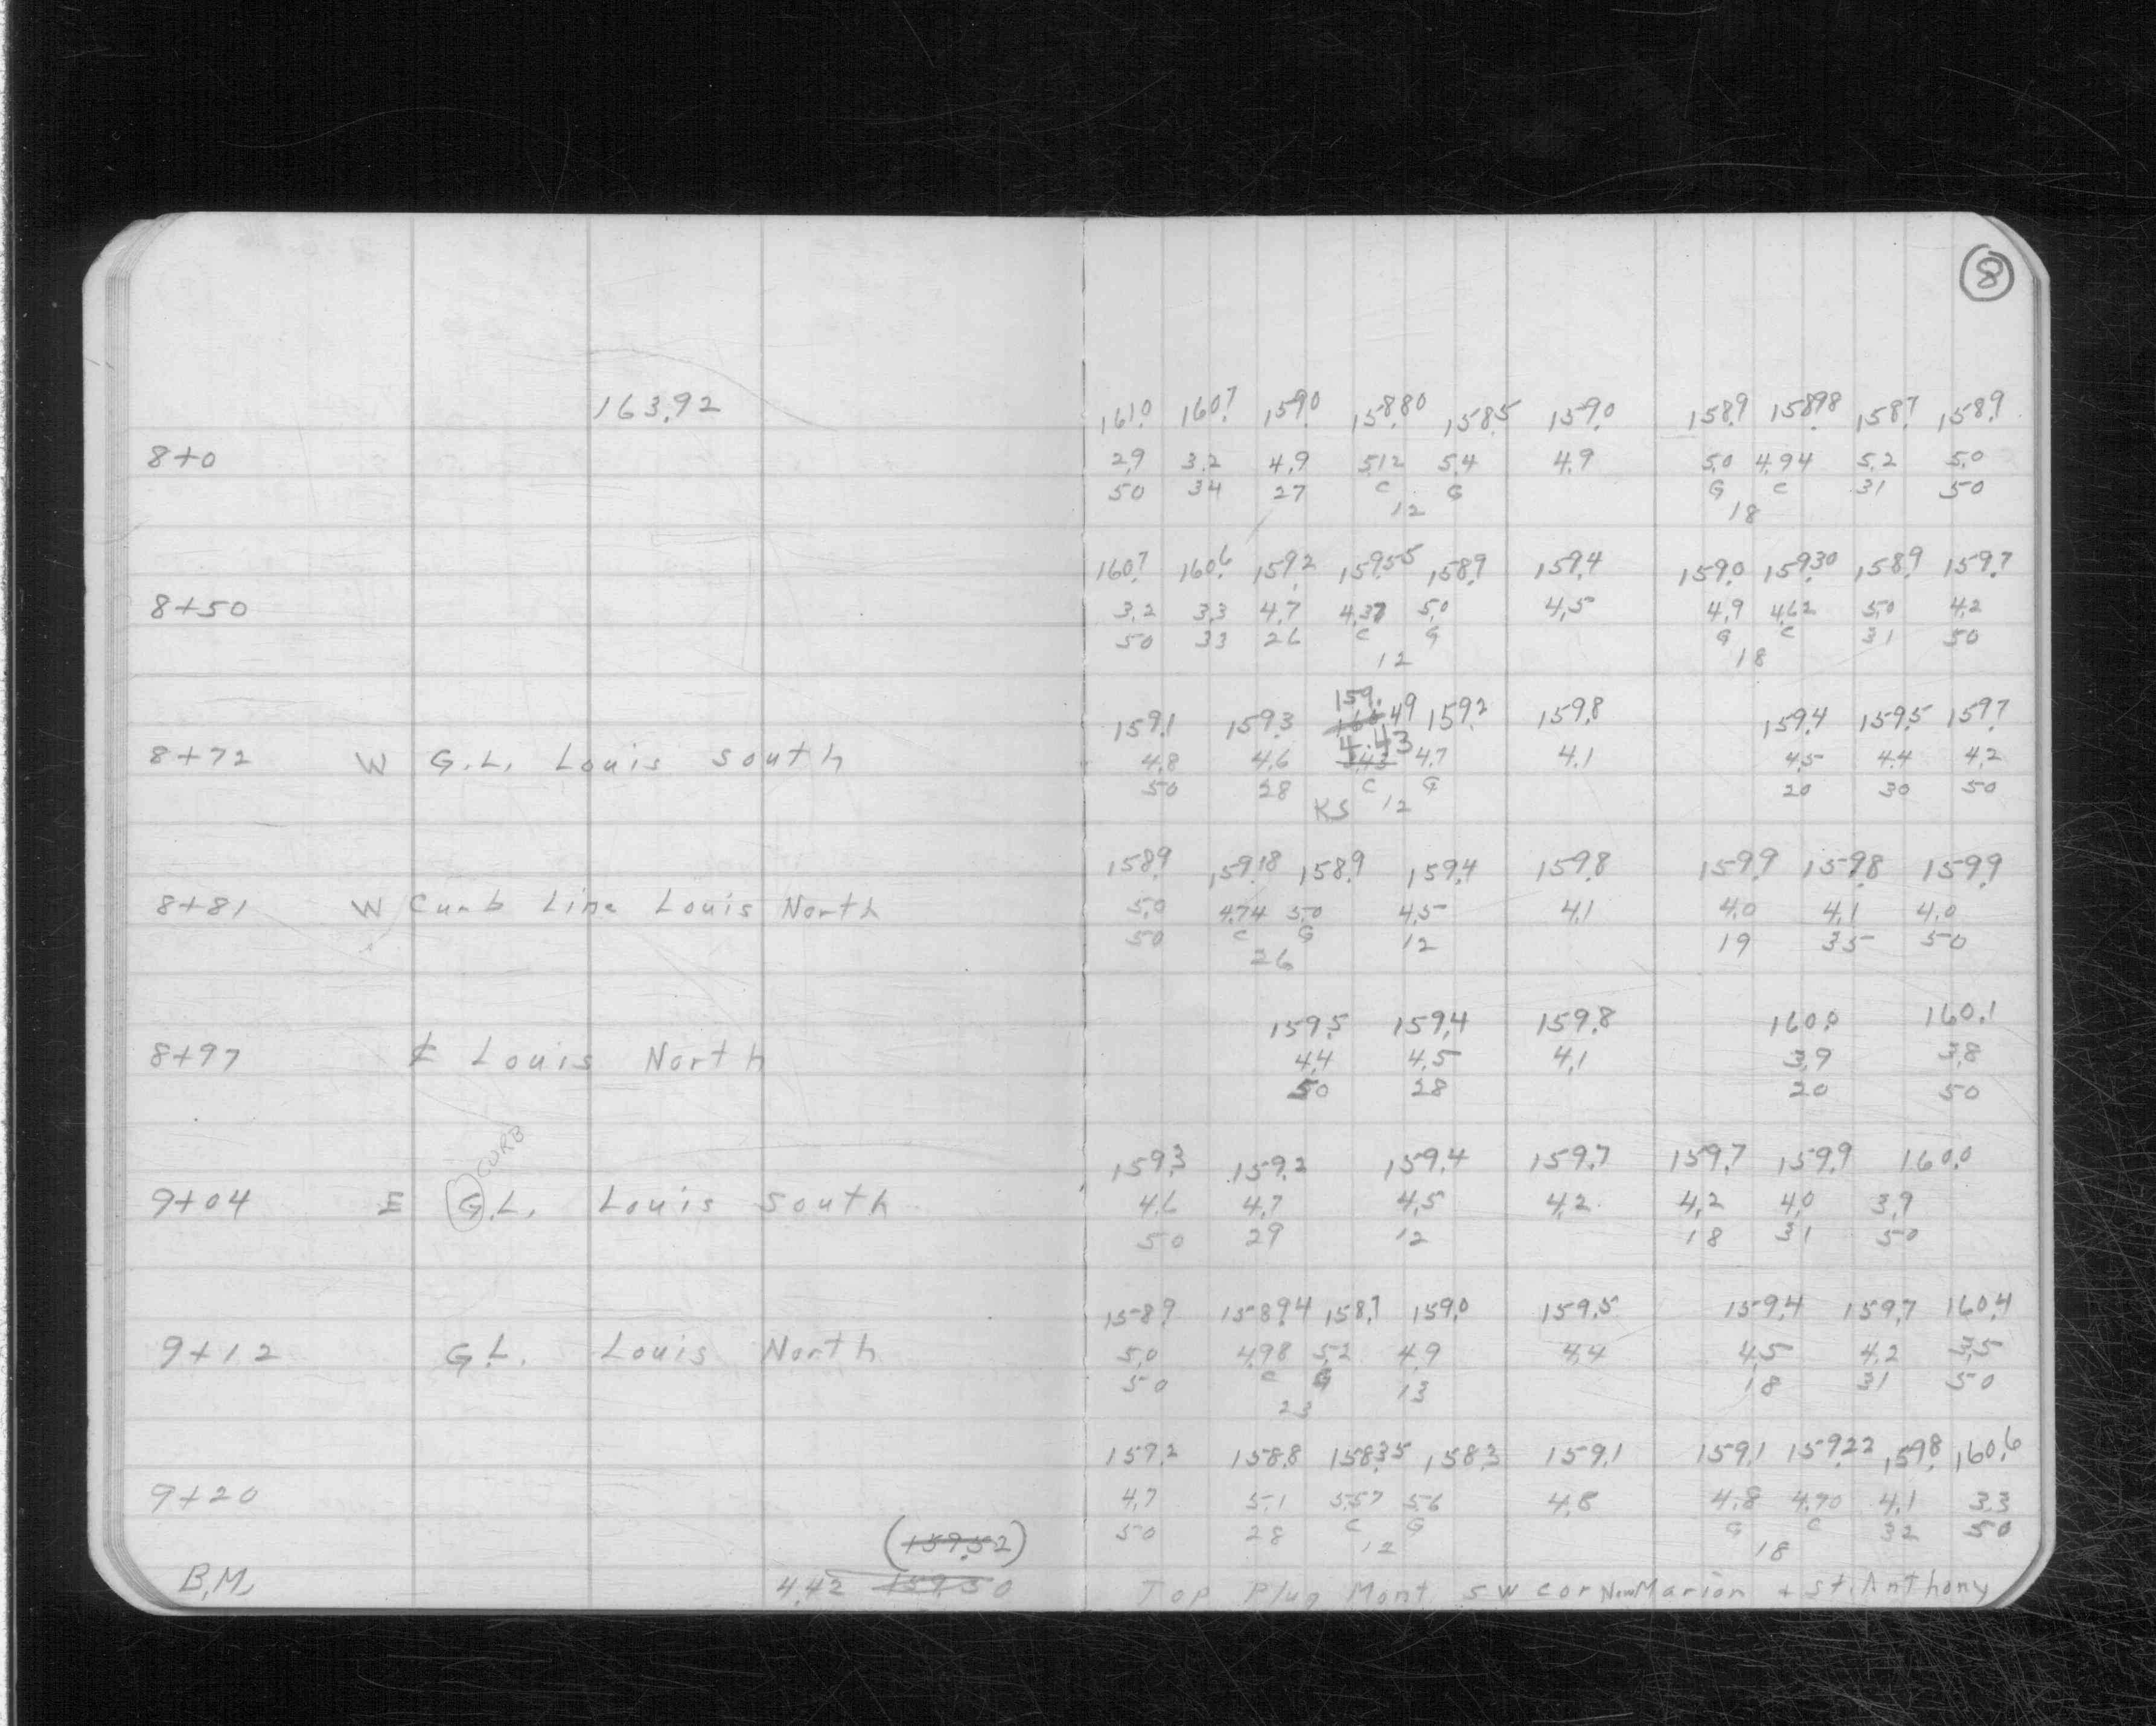 8
163.92 161.0 160.7 159.0 158.80 158.5 159.0 158.9 158.98 158.7 158.9
8+0 2.9 3.2 4.9 5.12 5.4 4.9 5.0 4.94 5.2 5.0
50 34 27 C G G C 31 50
12 18
160.7 160.6 159.2 159.55 158.9 159.4 159.0 159.30 158.9 159.7
8+50 3.2 3.3 4.7 4.37 5.0 4.5 4.9 4.62 5.0 4.2
50 33 26 C G G C 31 50
12 18
159.
159.1 159.3 160.49 159.2 159.8 159.4 159.5 159.7
4.43
8+72 W G.L. Louis South 4.8 4.6 3.43 4.7 4.1 4.5 4.4 4.2
50 28 C G 20 30 50
KS 12
158.9 159.18 158.9 159.4 159.8 159.9 159.8 159.9
8+81 W Curb Line Louis North 5.0 4.74 5.0 4.5 4.1 4.0 4.1 4.0
50 C G 12 19 35 50
26
159.5 159.4 159.8 160.0 160.1
8+97 ℄ Louis North 4.4 4.5 4.1 3.9 3.8
50 28 20 50
CURB
159.3 159.2 159.4 159.7 159.7 159.9 160.0
9+04 E G.L. Louis South 4.6 4.7 4.5 4.2 4.2 4.0 3.9
50 29 12 18 31 50
158.9 158.94 158.7 159.0 159.5 159.4 159.7 160.4
9+12 G.L. Louis North 5.0 4.98 5.2 4.9 4.4 4.5 4.2 3.5
50 C G 13 18 31 50
23
159.2 158.8 158.35 158.3 159.1 159.1 159.22 159.8 160.6
9+20 4.7 5.1 5.57 5.6 4.8 4.8 4.70 4.1 3.3
50 28 C G G C 32 50
(159.52) 12 18
B.M. 4.42 159.50 Top Plug Mont SW cor New Marion + St. Anthony